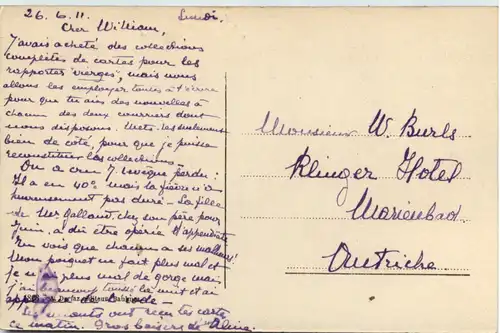 26.6.11. Lundi.
Cher William,
J'avais acheté des collections
complètes de cartes pour les
rapporter "vierges", mais nous
allons les employer toutes à t'écrire
pour que tu aies des nouvelles à
chacun des deux courriers dont
nous disposons. Mets-les seulement
bien de côté, pour que je puisse
reconstituer les collections.
On a cru M. Levêque perdu:
Il a eu 40°, mais la fièvre n'a
heureusement pas duré. La fille
de Mr Galland, chez son père pour
Juin, a dû être opérée d'appendicite
Tu vois que chacun a ses malheurs!
Mon poignet ne fait plus mal et
je n'ai plus mal de gorge mais
j'ai beaucoup toussé la nuit et ai
ont reçu tes cartes
ce matin. Gros baisers de Aline.
Monsieur W. Burls
Klinger Hotel
Marienbad
Autriche